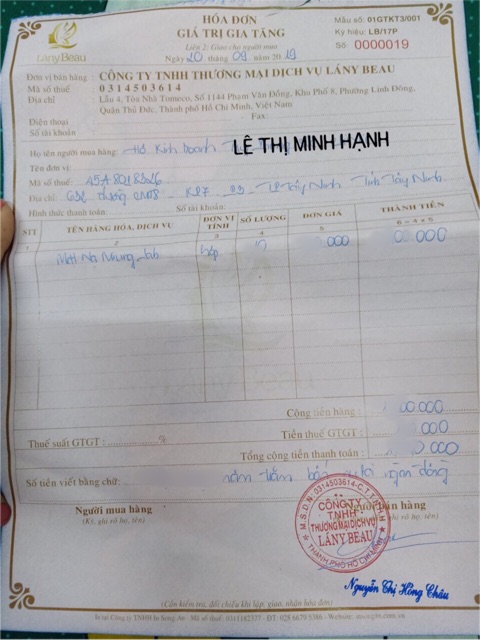 HÓA ĐƠN
GIÁ TRỊ GIA TĂNG
Liên 2: Giao cho người mua
Ngày 20 tháng 09 năm 2019
Mẫu số: 01GTKT3/001
Ký hiệu: LB/17P
Số: 0000019
LányBeau
Đơn vị bán hàng : CÔNG TY TNHH THƯƠNG MẠI DỊCH VỤ LÁNY BEAU
Mã số thuế : 0314503614
Địa chỉ : Lầu 4, Tòa Nhà Tomeco, Số 1144 Phạm Văn Đồng, Khu Phố 8, Phường Linh Đông,
Quận Thủ Đức, Thành phố Hồ Chí Minh, Việt Nam
Điện thoại : Fax:
Số tài khoản :
Họ tên người mua hàng: Hộ Kinh doanh LÊ THỊ MINH HẠNH
Tên đơn vị:
Mã số thuế:
Địa chỉ: Tây Ninh Tỉnh Tây Ninh
Hình thức thanh toán: Số tài khoản:
STT TÊN HÀNG HÓA, DỊCH VỤ ĐƠN VỊ TÍNH SỐ LƯỢNG ĐƠN GIÁ THÀNH TIỀN
1 2 3 4 5 6 = 4x5
Mặt Nạ hộp 10 000 00.000
Cộng tiền hàng : 00.000
Thuế suất GTGT : % Tiền thuế GTGT : .000
Tổng cộng tiền thanh toán : 0.000
Số tiền viết bằng chữ: năm trăm ngàn đồng
Người mua hàng
(Ký, ghi rõ họ, tên)
Người bán hàng
ghi rõ họ, tên)
M.S.D.N:0314503614-C.T.T.N.H.H
CÔNG TY
TNHH
THƯƠNG MẠI DỊCH VỤ
LÁNY BEAU
THÀNH PHỐ HỒ CHÍ MINH
Nguyễn Thị Hồng Châu
(Cần kiểm tra, đối chiếu khi lập, giao, nhận hóa đơn)